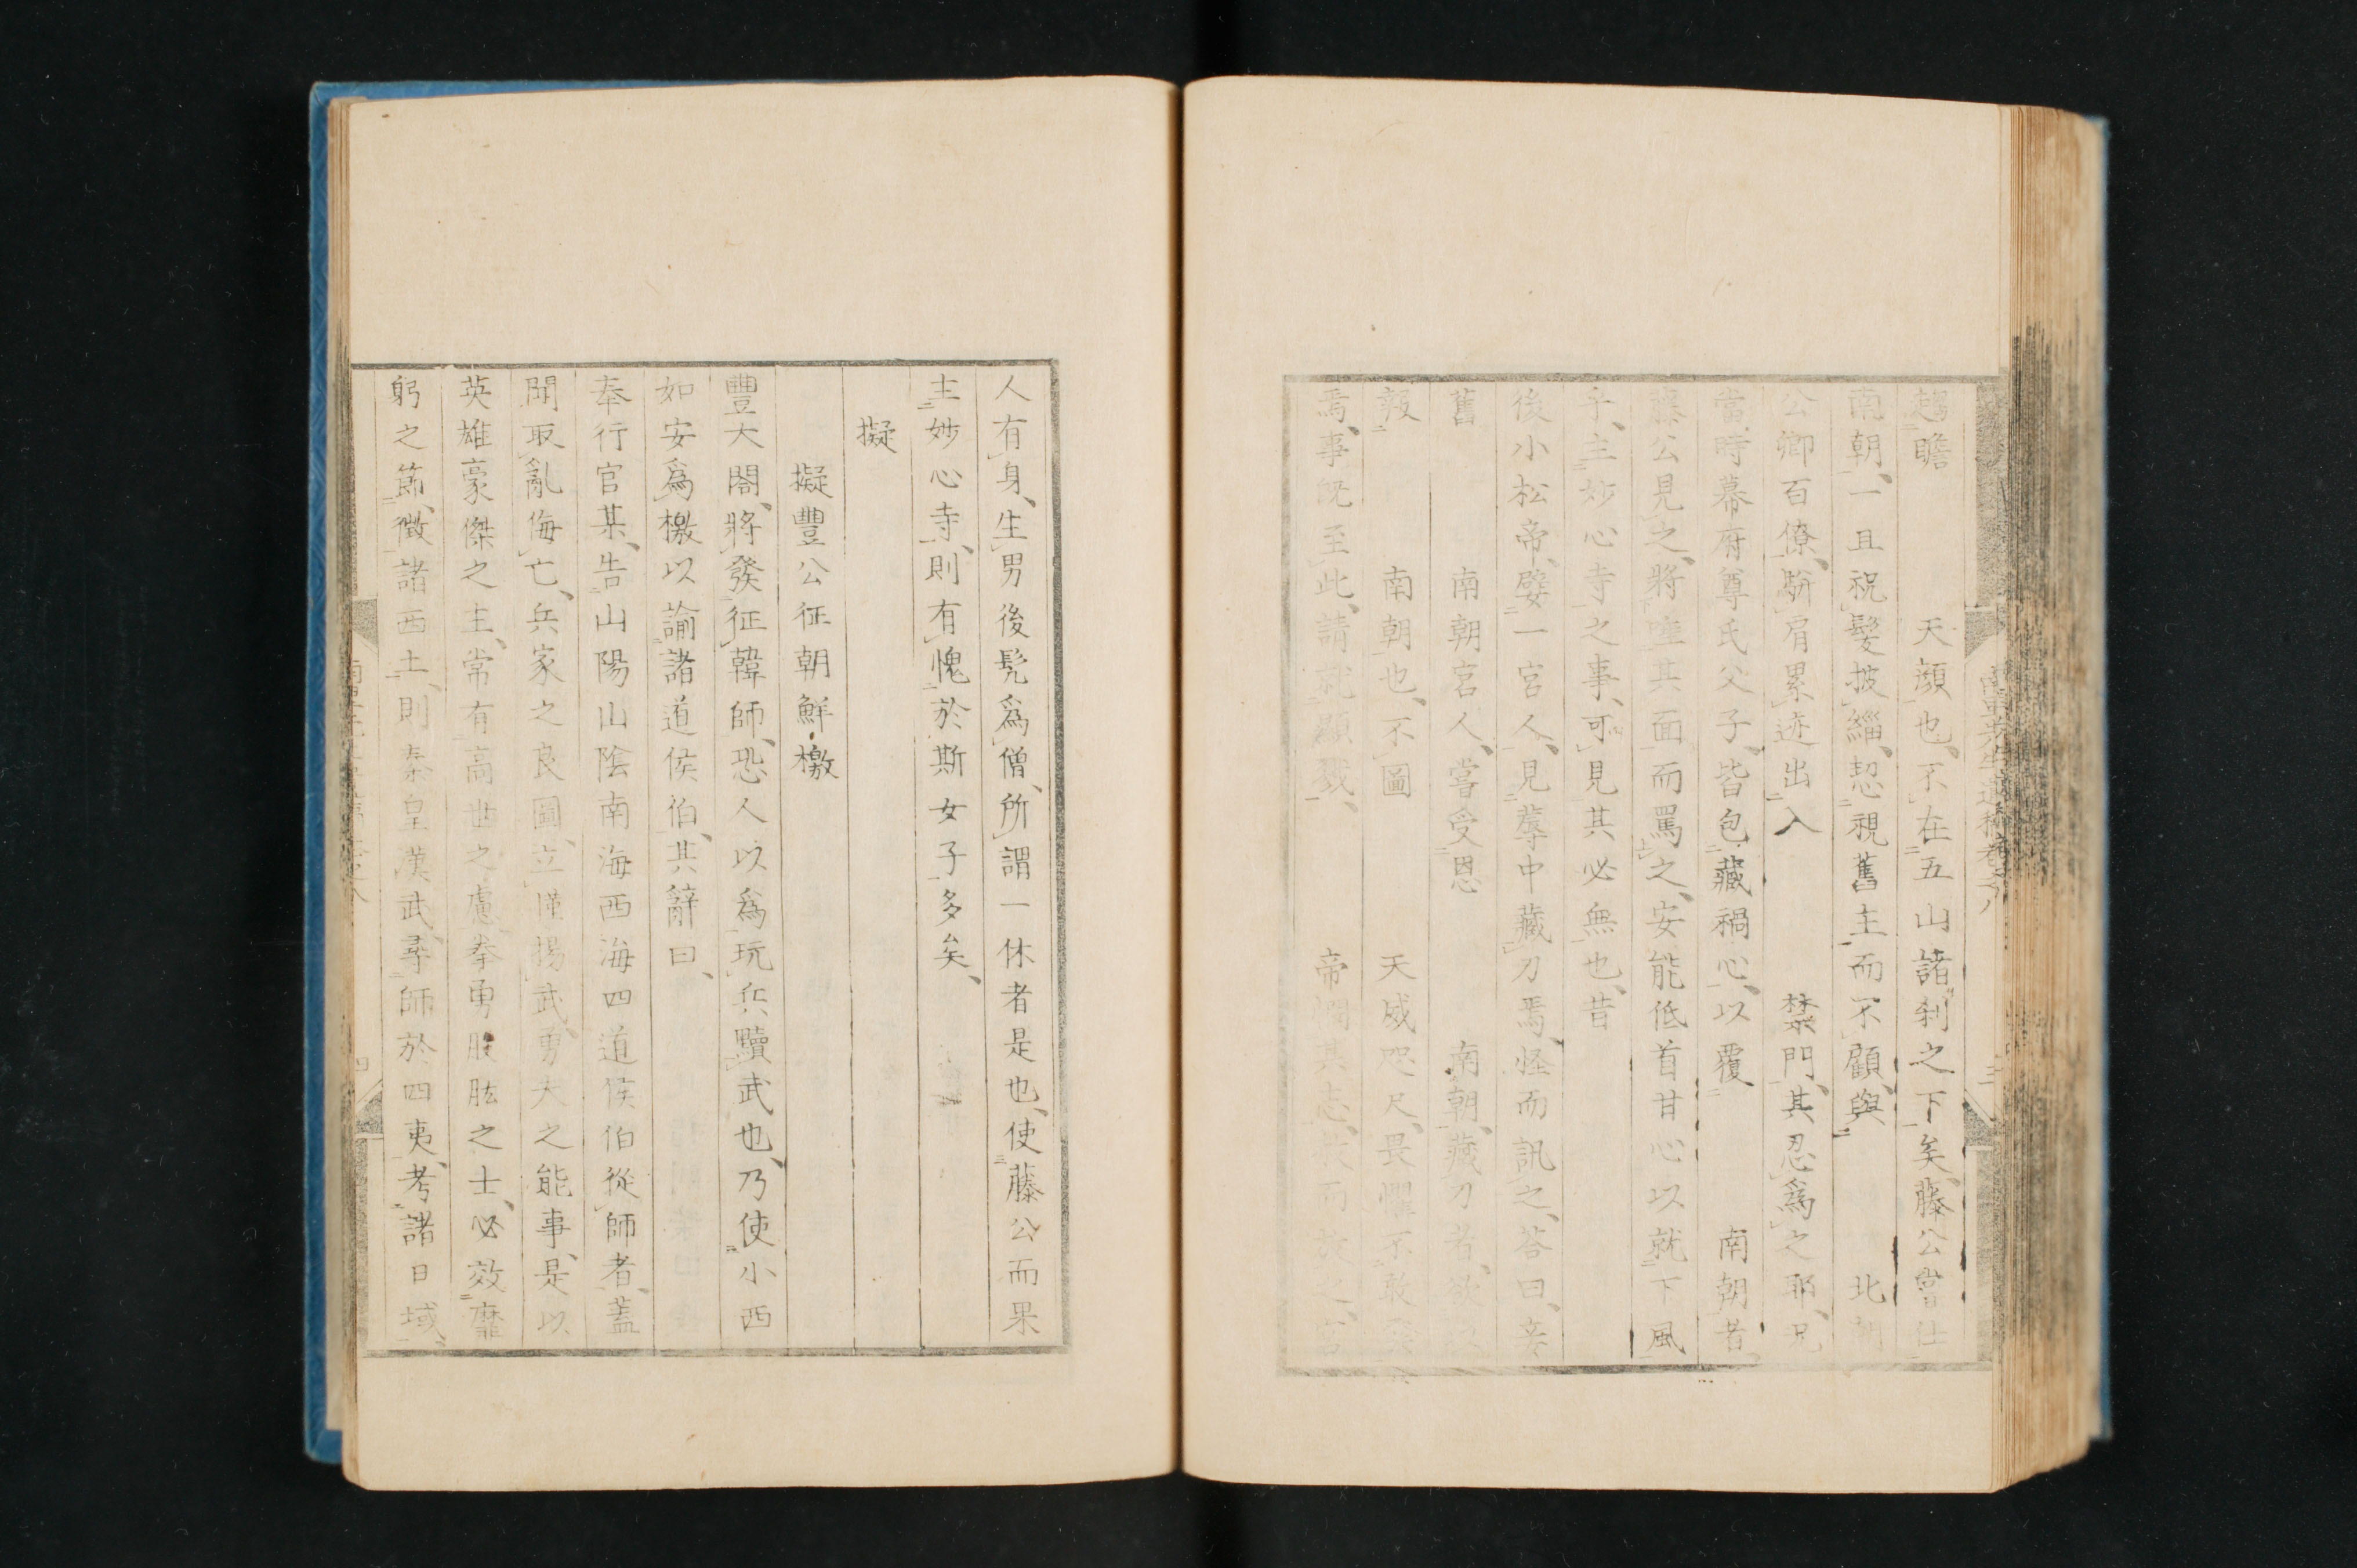 趨瞻　天顔也、不在五山諸刹之下矣、藤公嘗仕
南朝、一且祝髮披緇、恝視舊主而不顧、與　北朝
公卿百僚、騈肩累迹出入　禁門、其忍爲之耶、況
當時幕府尊氏父子、皆包藏禍心、以覆　南朝者、
藤公見之、將唾其面而罵之、安能低首甘心以就下風
乎、主妙心寺之事、可見其必無也、昔
後小松帝、嬖一宮人、見蓐中藏刀焉、怪而訊之、答曰、妾
舊　南朝宮人、嘗受恩　南朝、藏刀者、欲以
報　南朝也、不圖　天威咫尺、畏懼不敢
焉、事既至此、請就顯戮、　帝憫其志、
人有身、生男後髡爲僧、所謂一休者是也、使藤公而果
主妙心寺、則有愧於斯女子多矣、
擬
擬豐公征朝鮮檄
豐大閤、將發征韓師、恐人以爲玩兵黷武也、乃使小西
如安爲檄以諭諸道侯伯、其辭曰、
奉行官某、告山陽山陰南海西海四道侯伯從師者、蓋
聞取亂侮亡、兵家之良圖、立 揚武、勇夫之能事、是以
英雄豪傑之主、常有高世之慮、拳勇股肱之士、必效靡
躬之節、徵諸西土、則秦皇漢武、尋師於四夷、考諸日域、